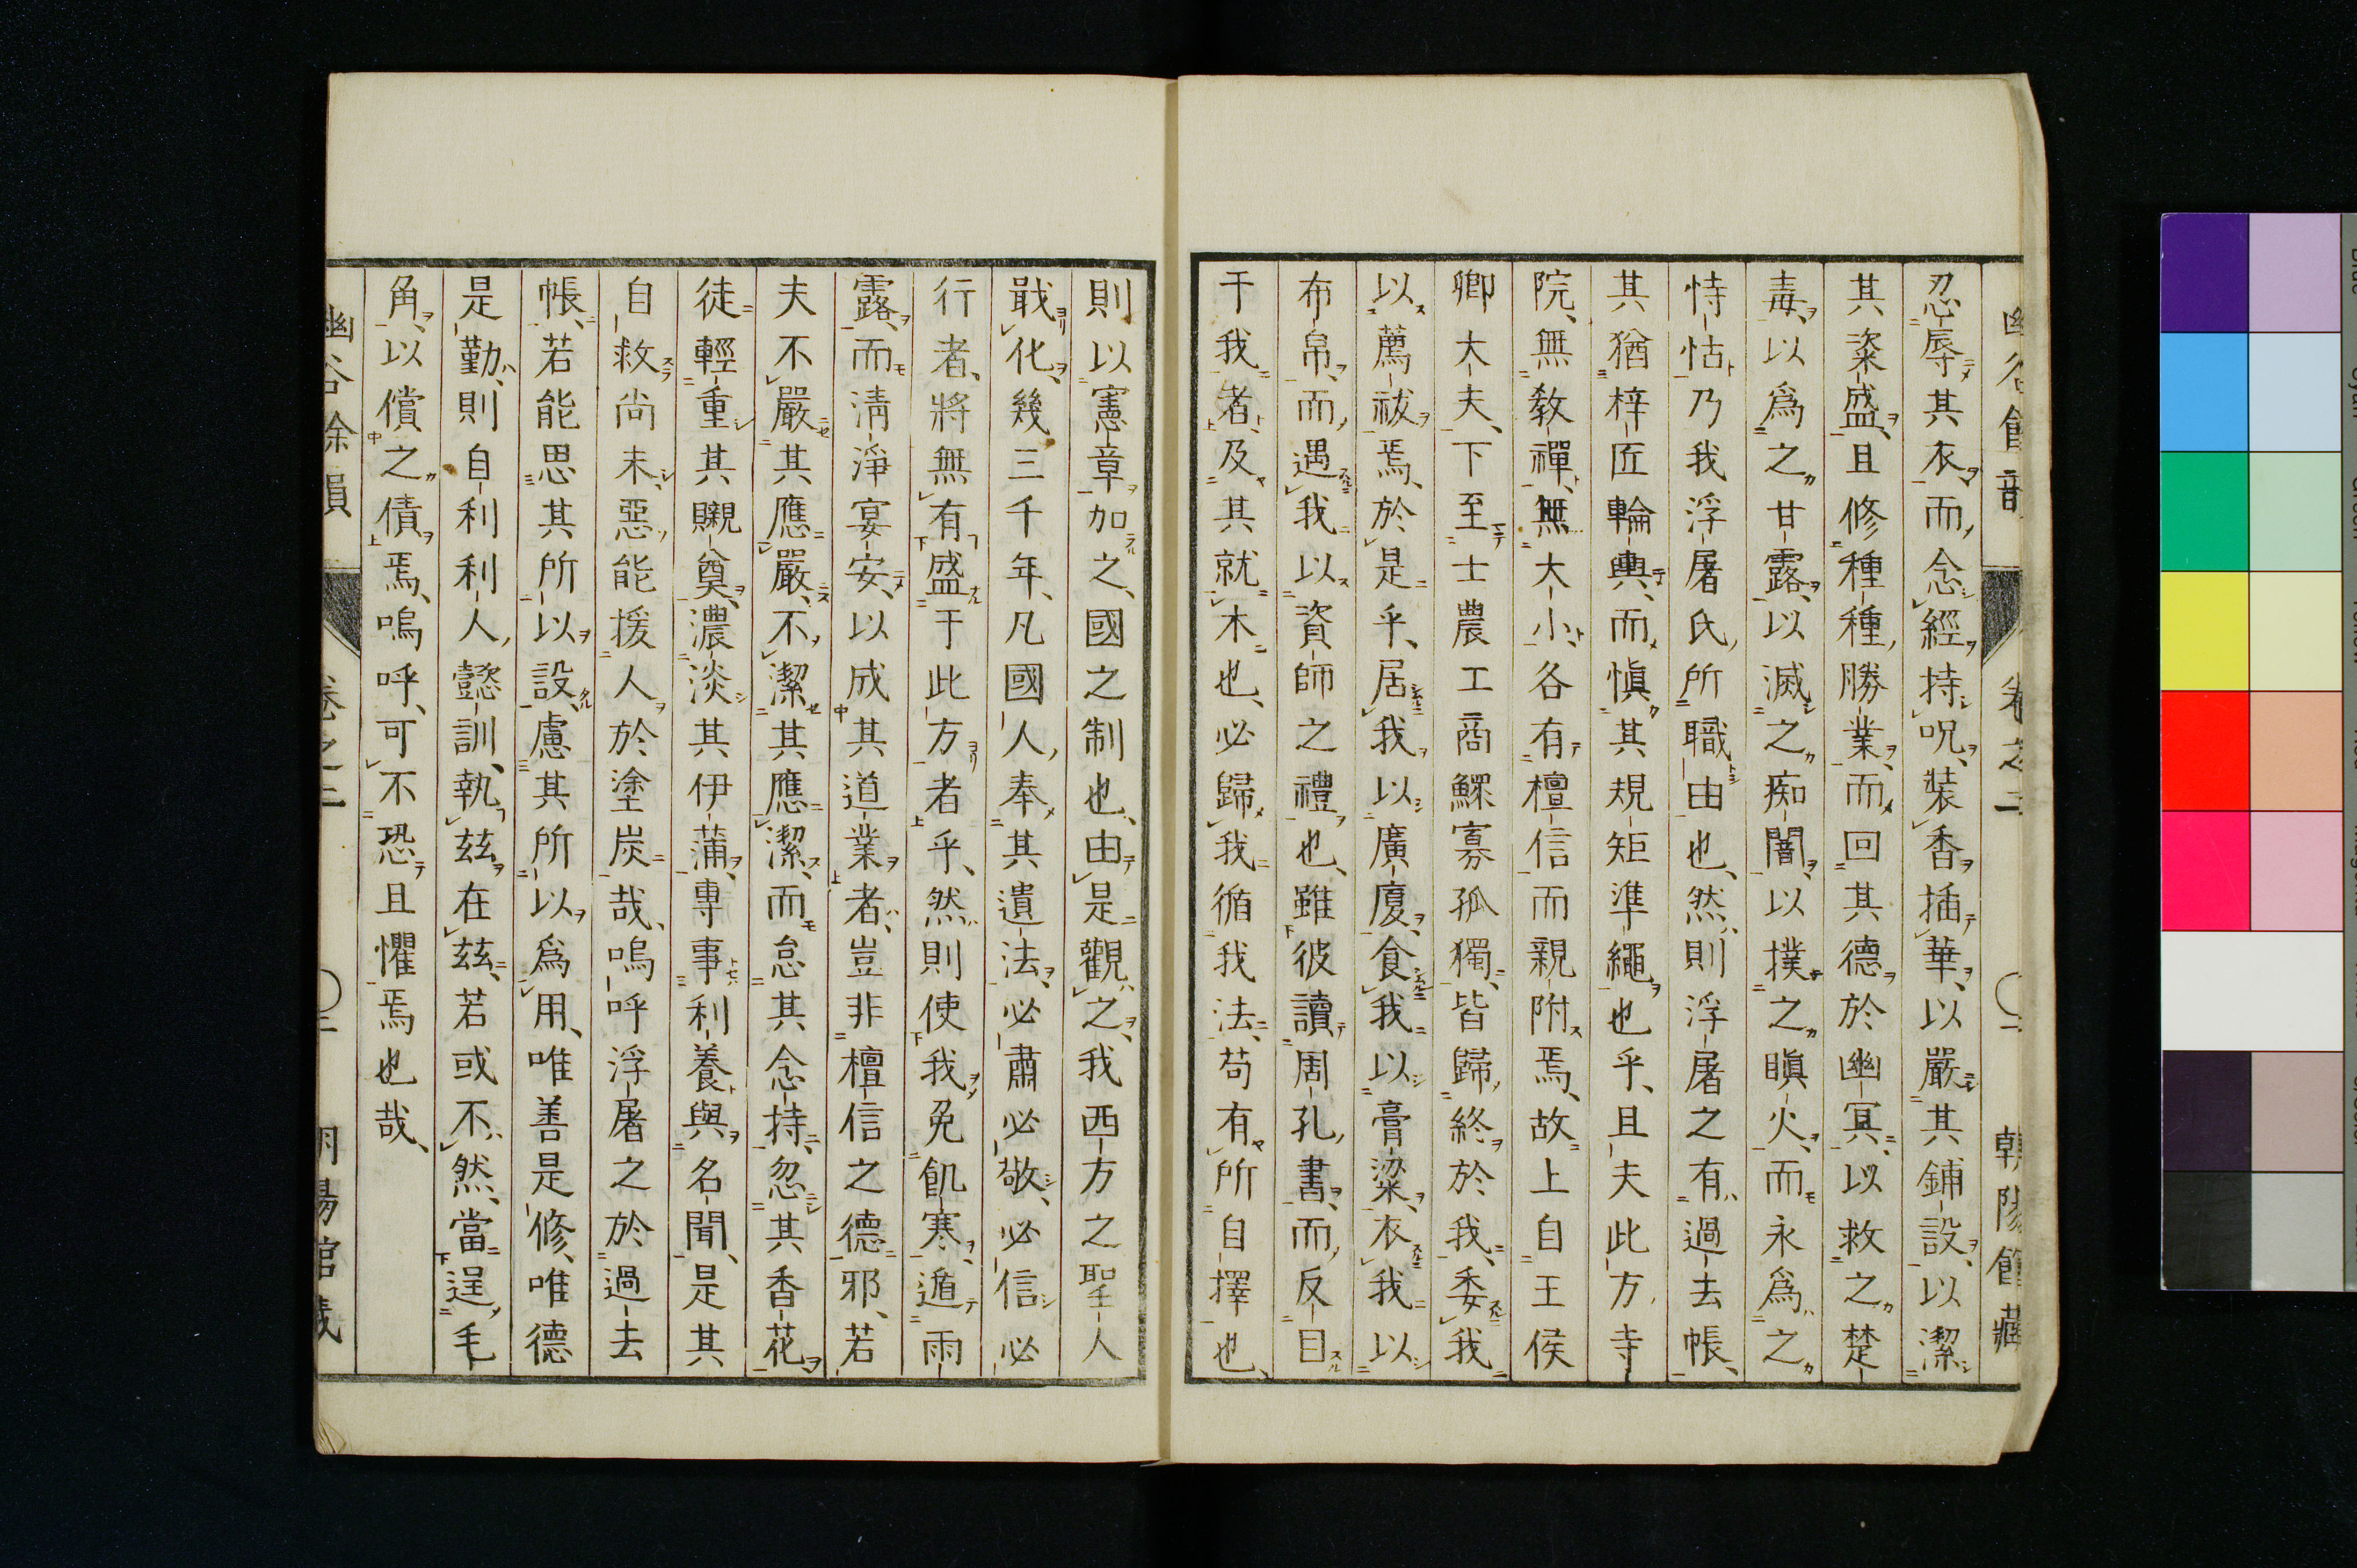 忍辱其衣而念經持呪裝香插華以嚴其鋪設以潔
其粢盛且修種種勝業而回其德於幽冥以救之楚
毒以爲之甘露以滅之痴闇以撲之瞋火而永爲之
恃怙乃我浮屠氏所職由也然則浮屠之有過去帳
其猶梓匠輪輿而愼其規矩準繩也乎且夫此方寺
院無教禪無大小各有檀信而親附焉故上自王侯
卿大夫下至士農工商鰥寡孤獨皆歸終於我委我
以薦祓焉於是乎居我以廣廈食我以膏粱衣我以
布帛而遇我以資師之禮也雖彼讀周孔書而反目
于我者及其就木也必歸我循我法苟有所自擇也
則以憲章加之國之制也由是觀之我西方之聖人
戢化幾三千年凡國人奉其遺法必肅必敬必信必
行者將無有盛于此方者乎然則使我免飢寒遁雨
露而淸淨宴安以成其道業者豈非檀信之德邪若
夫不嚴其應嚴不潔其應潔而怠其念持忽其香花
徒輕重其䞋奠濃淡其伊蒲專事利養與名聞是其
自救尚未惡能援人於塗炭哉嗚呼浮屠之於過去
帳若能思其所以設慮其所以爲用唯善是修唯德
是勤則自利利人懿訓執茲在茲若或不然當逞毛
角以償之債焉嗚呼可不恐且懼焉也哉
幽谷餘韻 卷之二 〇二 朝陽館藏